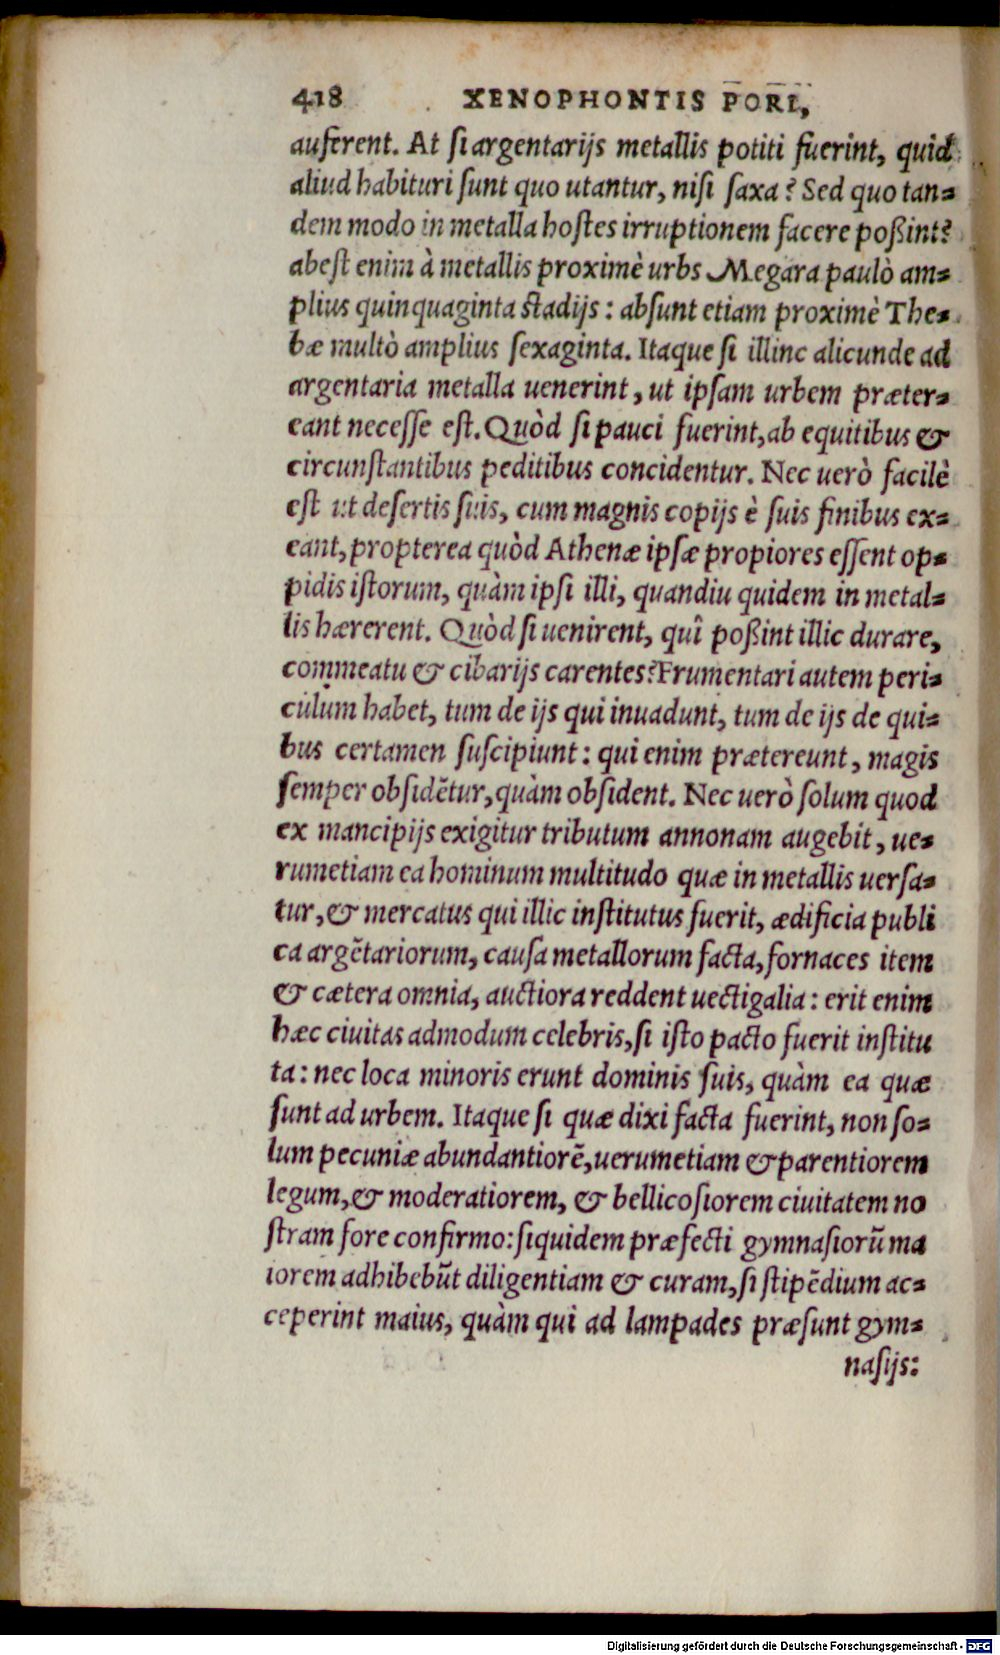 418 XENOPHONTIS PORI,
auferent. At ſi argentarijs metallis potiti fuerint, quid
aliud habituri ſunt quo utantur, niſi ſaxa? Sed quo tan-
dem modo in metalla hoſtes irruptionem facere poßint?
abeſt enim à metallis proximè urbs Megara paulò am-
plius quinquaginta ſtadijs: abſunt etiam proximè The-
bæ multò amplius ſexaginta. Itaque ſi illinc alicunde ad
argentaria metalla uenerint, ut ipſam urbem præter-
eant neceſſe eſt. Quòd ſi pauci fuerint, ab equitibus &
circunſtantibus peditibus concidentur. Nec uerò facilè
eſt ut deſertis ſuis, cum magnis copijs è ſuis finibus ex-
eant, propterea quòd Athenæ ipſæ propiores eſſent op-
pidis iſtorum, quàm ipſi illi, quandiu quidem in metal-
lis hærerent. Quòd ſi uenirent, quî poßint illic durare,
commeatu & cibarijs carentes? Frumentari autem peri-
culum habet, tum de ijs qui inuadunt, tum de ijs de qui-
bus certamen ſuſcipiunt: qui enim prætereunt, magis
ſemper obſidẽtur, quàm obſident. Nec uerò ſolum quod
ex mancipijs exigitur tributum annonam augebit, ue-
rumetiam ea hominum multitudo quæ in metallis uerſa-
tur, & mercatus qui illic inſtitutus fuerit, ædificia publi
ca argẽtariorum, cauſa metallorum facta, fornaces item
& cætera omnia, auctiora reddent uectigalia: erit enim
hæc ciuitas admodum celebris, ſi iſto pacto fuerit inſtitu
ta: nec loca minoris erunt dominis ſuis, quàm ea quæ
ſunt ad urbem. Itaque ſi quæ dixi facta fuerint, non ſo-
lum pecuniæ abundantiorẽ, uerumetiam & parentiorem
legum, & moderatiorem, & bellicoſiorem ciuitatem no
ſtram fore confirmo: ſiquidem præfecti gymnaſiorũ ma
iorem adhibebũt diligentiam & curam, ſi ſtipẽdium ac-
ceperint maius, quàm qui ad lampades præſunt gym-
naſijs:
Digitalisierung gefördert durch die Deutsche Forschungsgemeinschaft - DFG